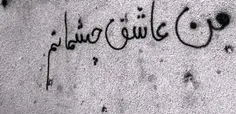 من عاشق چشمانم